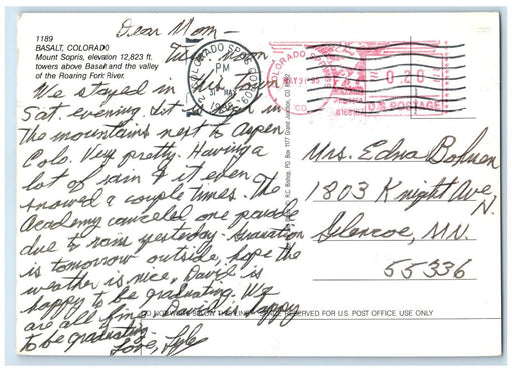 Dear Mom -
1189
BASALT, COLORADO
Mount Sopris, elevation 12,823 ft.
towers above Basalt and the valley
of the Roaring Fork River.
noon
We stayed in this town
Sat. evening. It in
the mountains next to Aspen
Colo. Very pretty. Having a
lot of rain & it even
snowed a couple times. The
Academy canceled one parade
due to rain yesterday. Graduation
is tomorrow outside, hope the
weather is nice. David is
happy to be graduating. We
are all fine. David is happy
to be graduating.
Love, Lyle
COLORADO SPGS CO 809
PM
31 MAY
COLORADO SP
MAY 31 '95
CO
0.20
U.S. POSTAGE
R.C. Bishop, P.O. Box 1177 Grand Junction, CO 81502
Mrs. Edna
1803 Knight Ave
N.
Glencoe, MN.
55336
DO NOT WRITE BELOW THIS LINE - SPACE RESERVED FOR U.S. POST OFFICE USE ONLY